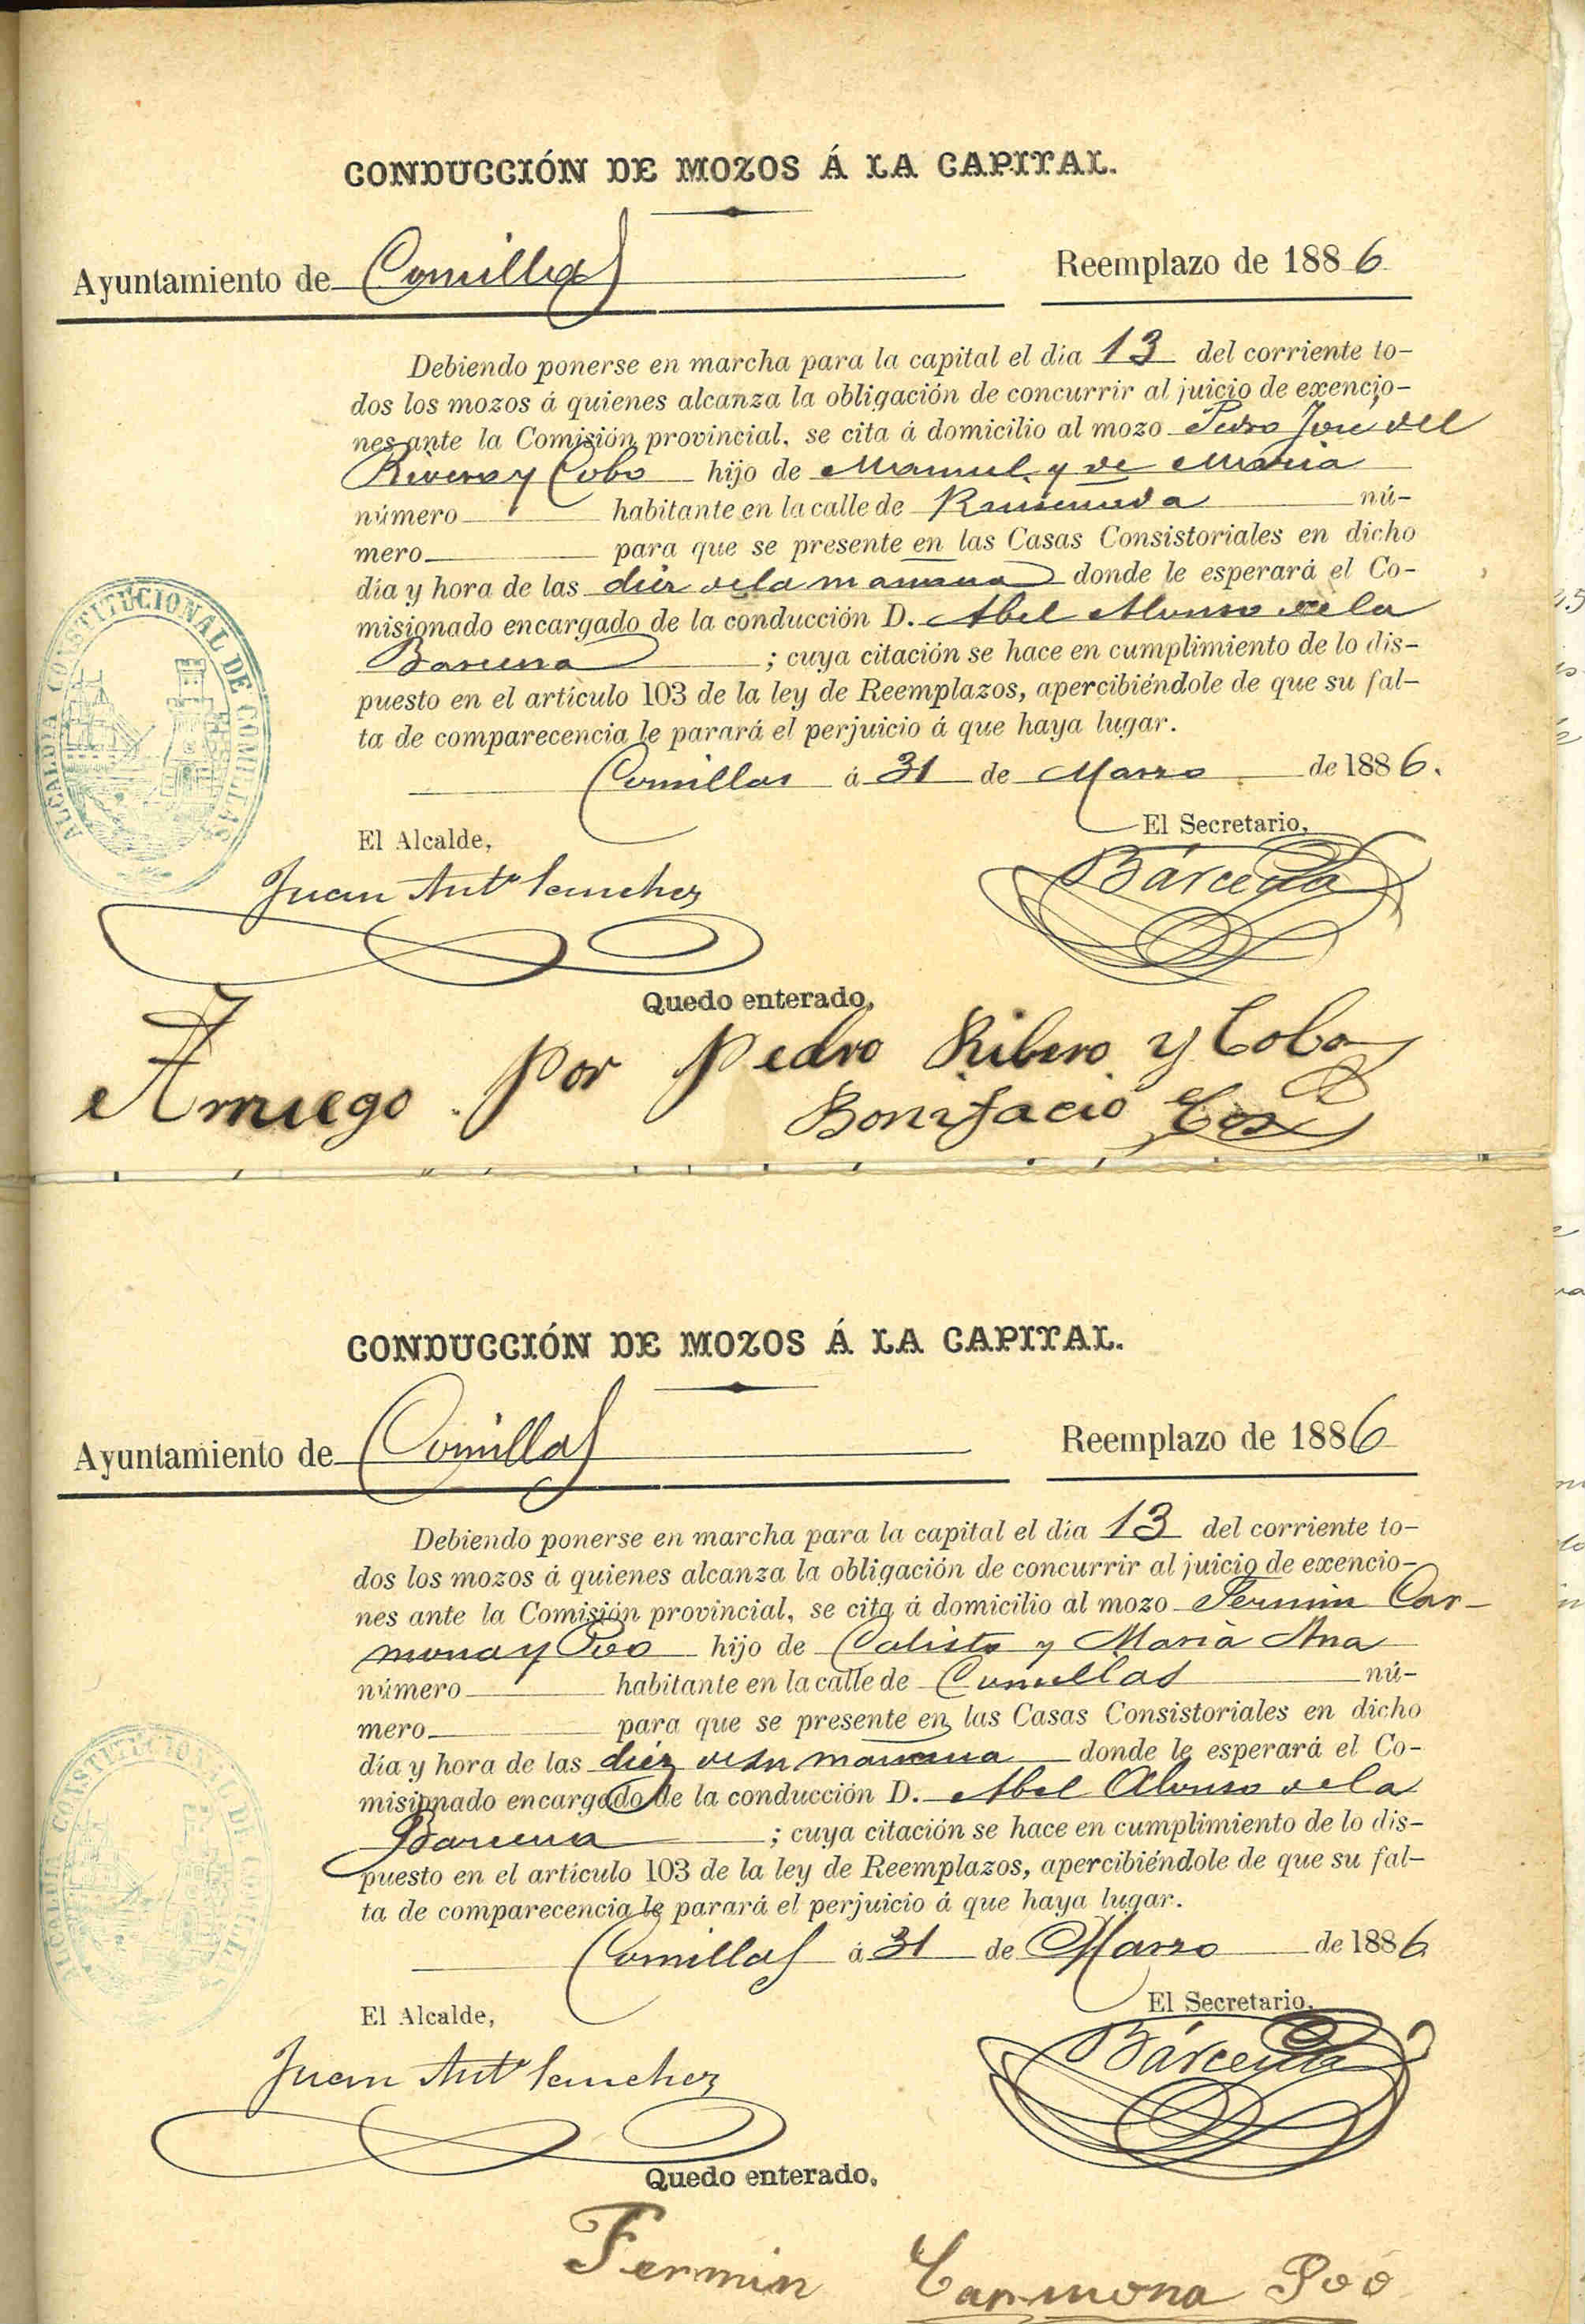 CONDUCCIÓN DE MOZOS Á LA CAPITAL.
Ayuntamiento de Comillas Reemplazo de 1886
Debiendo ponerse en marcha para la capital el día 13 del corriente to-
dos los mozos á quienes alcanza la obligación de concurrir al juicio de exencio-
nes ante la Comisión provincial, se cita á domicilio al mozo Pedro José del
Rivero y Cobo hijo de Manuel y de Maria
número habitante en la calle de Ruiseñada nú-
mero para que se presente en las Casas Consistoriales en dicho
día y hora de las diez de la mañana donde le esperará el Co-
misionado encargado de la conducción D. Abel Alonso de la
Barcena ; cuya citación se hace en cumplimiento de lo dis-
puesto en el artículo 103 de la ley de Reemplazos, apercibiéndole de que su fal-
ta de comparecencia le parará el perjuicio á que haya lugar.
Comillas á 31 de Marzo de 1886.
ALCALDIA CONSTITUCIONAL DE COMILLAS
El Alcalde, El Secretario,
Juan Antº Sanchez Bárcena
Quedo enterado,
A rruego por Pedro Ribero y Cobo
Bonifacio Cos
CONDUCCIÓN DE MOZOS Á LA CAPITAL.
Ayuntamiento de Comillas Reemplazo de 1886
Debiendo ponerse en marcha para la capital el día 13 del corriente to-
dos los mozos á quienes alcanza la obligación de concurrir al juicio de exencio-
nes ante la Comisión provincial, se cita á domicilio al mozo Fermin Car-
mona y Póo hijo de Calisto y Maria Ana
número habitante en la calle de Comillas nú-
mero para que se presente en las Casas Consistoriales en dicho
día y hora de las diez de la mañana donde le esperará el Co-
misionado encargado de la conducción D. Abel Alonso de la
Barcena ; cuya citación se hace en cumplimiento de lo dis-
puesto en el artículo 103 de la ley de Reemplazos, apercibiéndole de que su fal-
ta de comparecencia le parará el perjuicio á que haya lugar.
Comillas á 31 de Marzo de 1886
ALCALDIA CONSTITUCIONAL DE COMILLAS
El Alcalde, El Secretario,
Juan Antº Sanchez Bárcena
Quedo enterado,
Fermin Carmona Póo